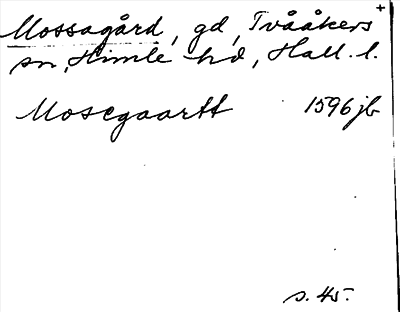 Mossagård, gd, Tvååkers
sn, Himle hd, Hall. l.
Mosegaartt 1596 jb
s. 45.